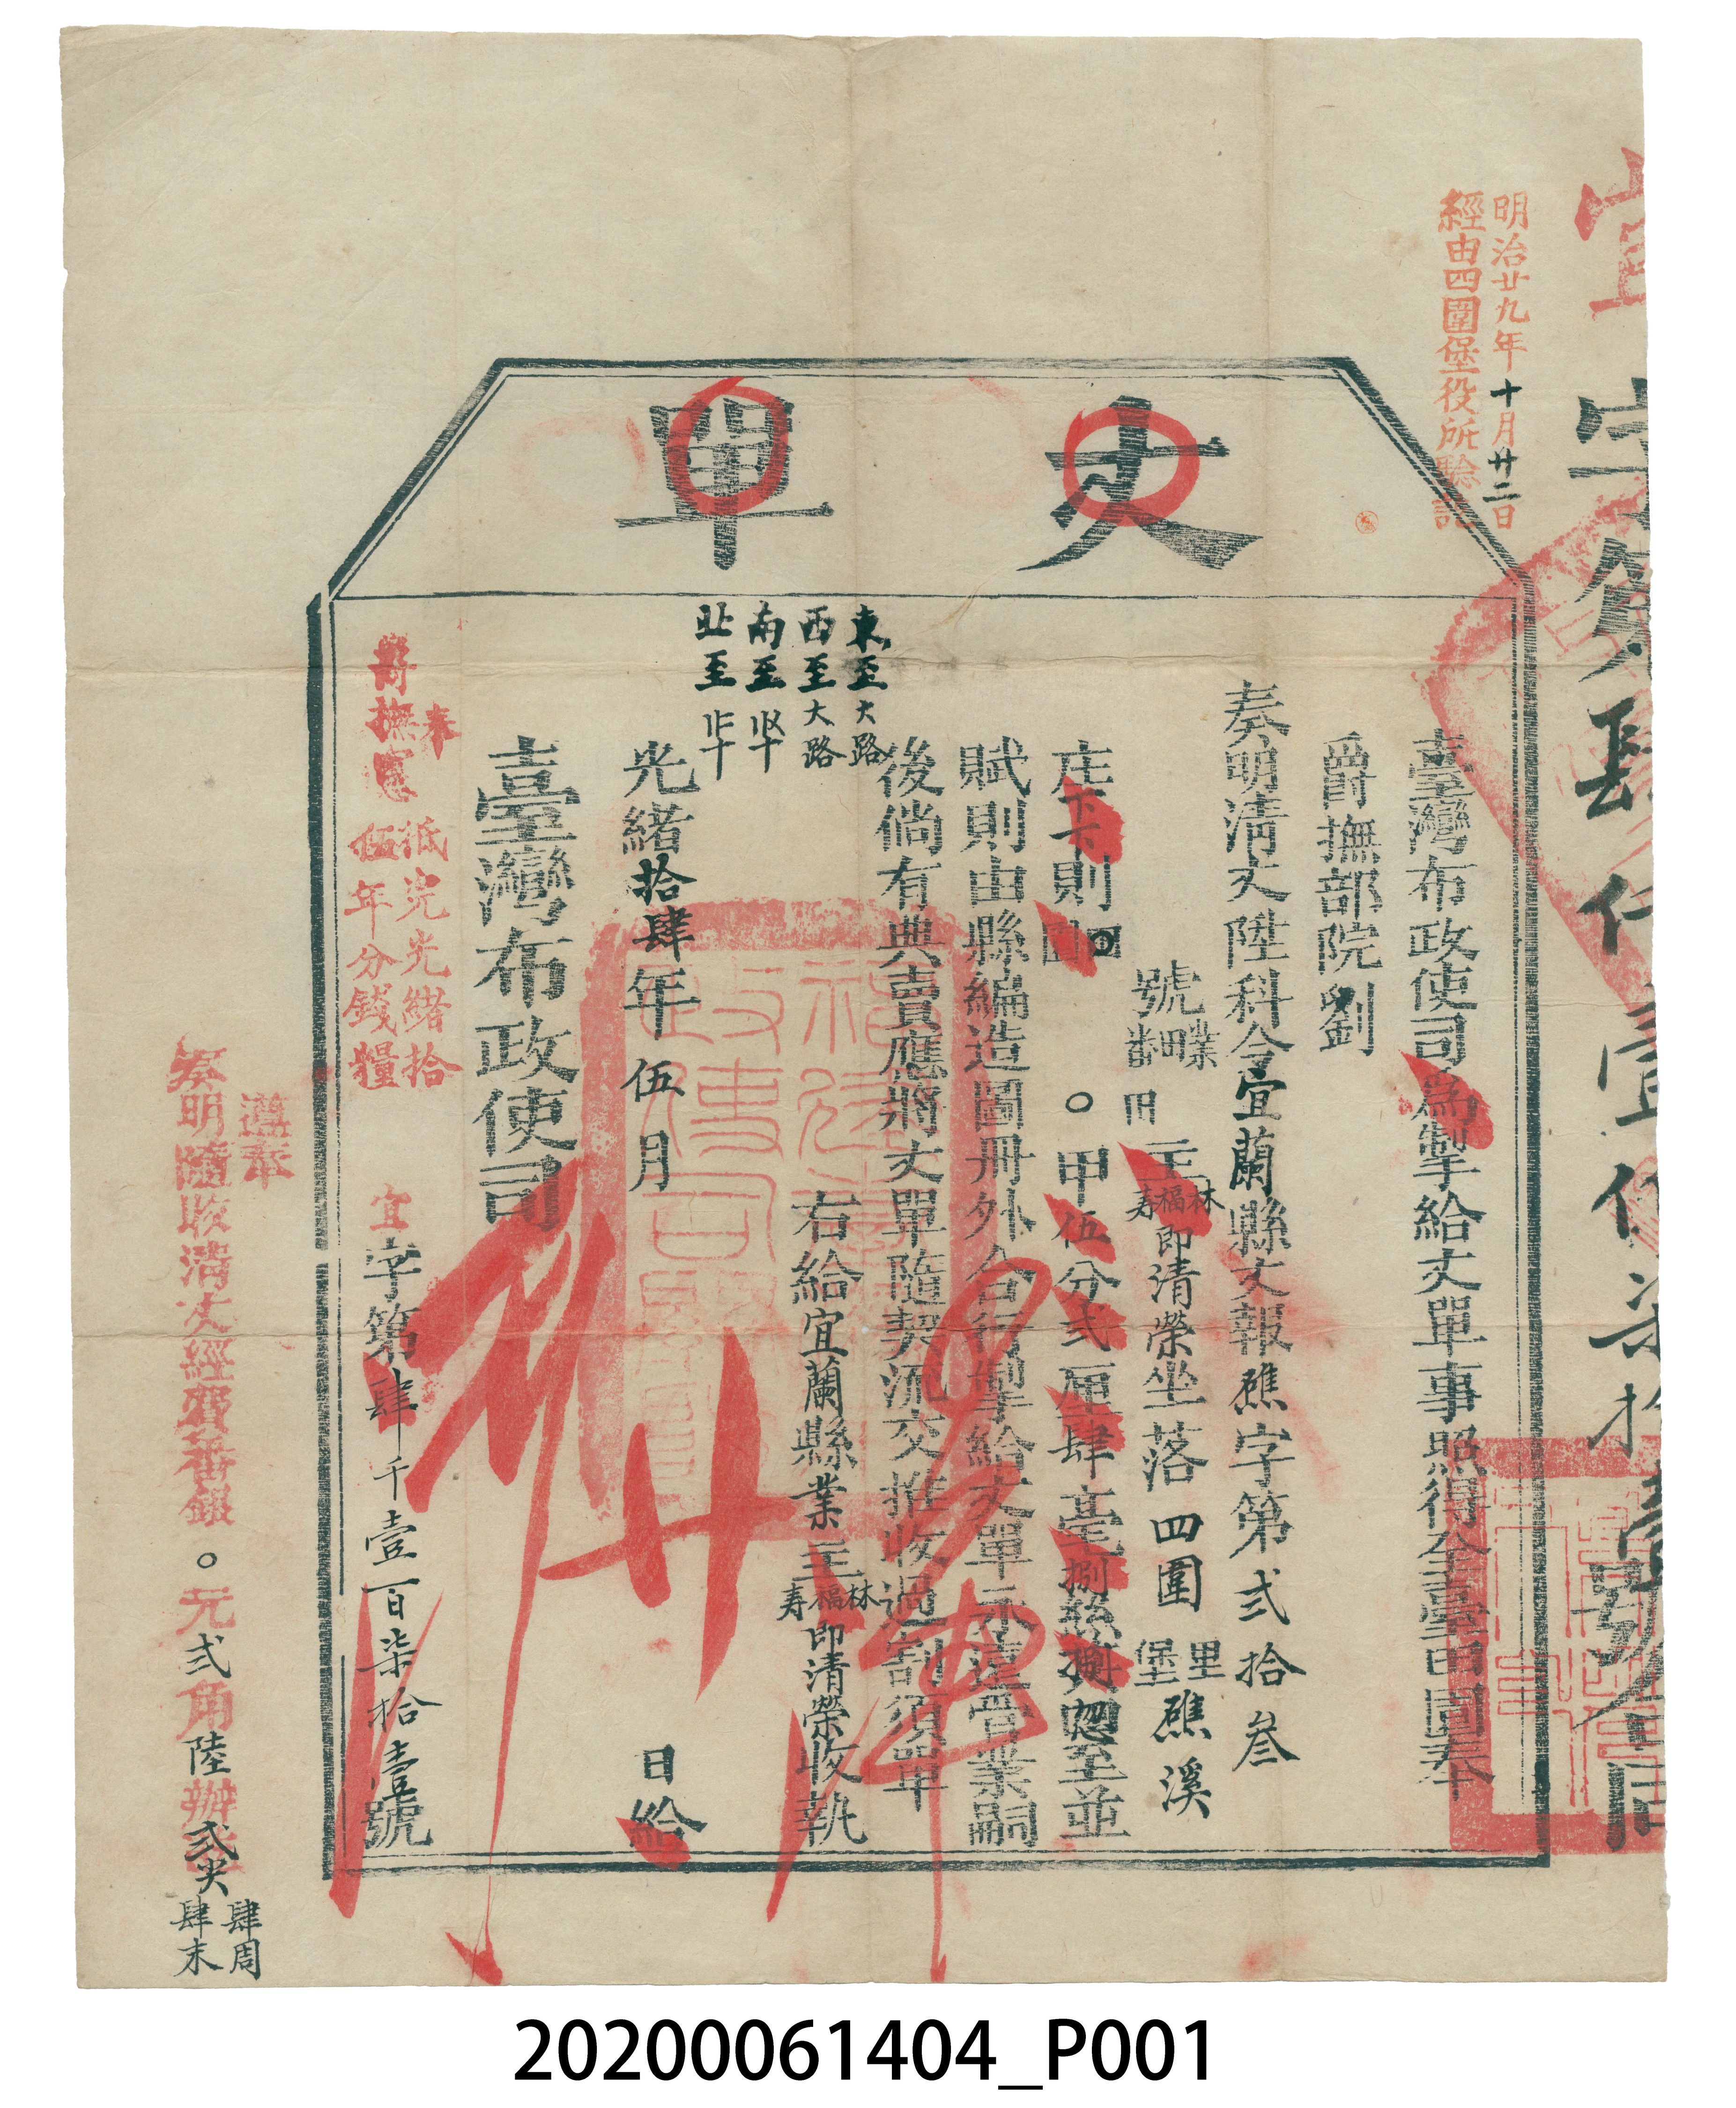 明治廿九年十月廿二日
經由四圍堡役所驗記
丈單
臺灣布政使司為掣給丈單事照得全臺田園奉
爵撫部院劉
奏明清丈陞科今宜蘭縣丈報礁字第弍拾叁
號業田番旧主林福寿即清榮坐落四圍里堡礁溪
庄下下則園〇甲伍分弍厘肆毫捌絲捌忽至並
賦則由縣編造圖冊外合行掣給丈單示遵管業嗣
後倘有典賣應將丈單隨契流交推收過割須單
右給宜蘭縣業主林福寿即清榮收執
東至大路
西至大路
南至毗
北至毗
光緒拾肆年伍月日給
臺灣布政使司
奉
爵撫憲
抵完光緒拾
伍年分錢糧
宜字第肆千壹百柒拾壹號
遵奉
奏明隨收清丈經費番銀〇元弍角陸辦弍尖肆周肆末
20200061404_P001